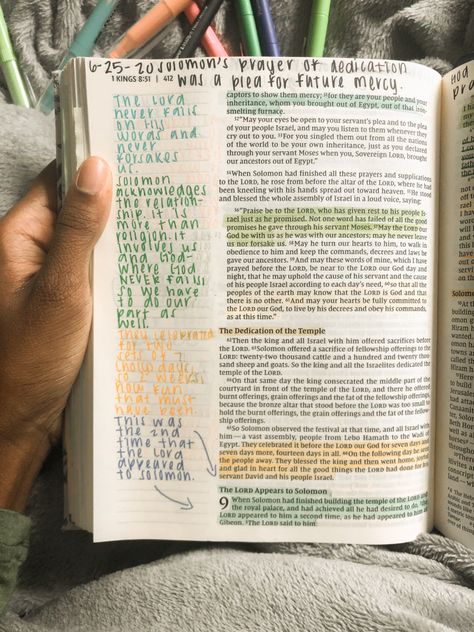 6-25-20 Solomon's prayer of dedication
was a plea for future mercy.
1 KINGS 8:51 | 412
The Lord
never fails
on His
words and
never
forsakes
us.
Solomon
acknowledges
the relation-
ship. it is
more than
religion. it
involves
us and
God-
where God
NEVER fails so
we have
to do our
part as
well.
They celebrated
for two
sets of 7
days,
so 2 weeks!
how fun
that must
have been.
This was
the 2nd
time that
the Lord
appeared
to Solomon.
captors to show them mercy; ⁵¹for they are your people and your
inheritance, whom you brought out of Egypt, out of that iron-
smelting furnace.
⁵²"May your eyes be open to your servant's plea and to the plea
of your people Israel, and may you listen to them whenever they
cry out to you. ⁵³For you singled them out from all the nations
of the world to be your own inheritance, just as you declared
through your servant Moses when you, Sovereign LORD, brought
our ancestors out of Egypt."
⁵⁴When Solomon had finished all these prayers and supplications
to the LORD, he rose from before the altar of the LORD, where he had
been kneeling with his hands spread out toward heaven. ⁵⁵He stood
and blessed the whole assembly of Israel in a loud voice, saying:
⁵⁶"Praise be to the LORD, who has given rest to his people Is-
rael just as he promised. Not one word has failed of all the good
promises he gave through his servant Moses. ⁵⁷May the LORD our
God be with us as he was with our ancestors; may he never leave
us nor forsake us. ⁵⁸May he turn our hearts to him, to walk in
obedience to him and keep the commands, decrees and laws he
gave our ancestors. ⁵⁹And may these words of mine, which I have
prayed before the LORD, be near to the LORD our God day and
night, that he may uphold the cause of his servant and the cause
of his people Israel according to each day's need, ⁶⁰so that all the
peoples of the earth may know that the LORD is God and that
there is no other. ⁶¹And may your hearts be fully committed to
the LORD our God, to live by his decrees and obey his commands,
as at this time."
The Dedication of the Temple
⁶²Then the king and all Israel with him offered sacrifices before
the LORD. ⁶³Solomon offered a sacrifice of fellowship offerings to the
LORD: twenty-two thousand cattle and a hundred and twenty thou-
sand sheep and goats. So the king and all the Israelites dedicated the
temple of the LORD.
⁶⁴On that same day the king consecrated the middle part of the
courtyard in front of the temple of the LORD, and there he offered
burnt offerings, grain offerings and the fat of the fellowship offerings,
because the bronze altar that stood before the LORD was too small to
hold the burnt offerings, the grain offerings and the fat of the fellow-
ship offerings.
⁶⁵So Solomon observed the festival at that time, and all Israel with
him—a vast assembly, people from Lebo Hamath to the Wadi of
Egypt. They celebrated it before the LORD our God for seven days and
seven days more, fourteen days in all. ⁶⁶On the following day he sent
the people away. They blessed the king and then went home, joyful
and glad in heart for all the good things the LORD had done for his
servant David and his people Israel.
The LORD Appears to Solomon
9 When Solomon had finished building the temple of the LORD and
the royal palace, and had achieved all he had desired to do, ²the
LORD appeared to him a second time, as he had appeared to him at
Gibeon. ³The LORD said to him: